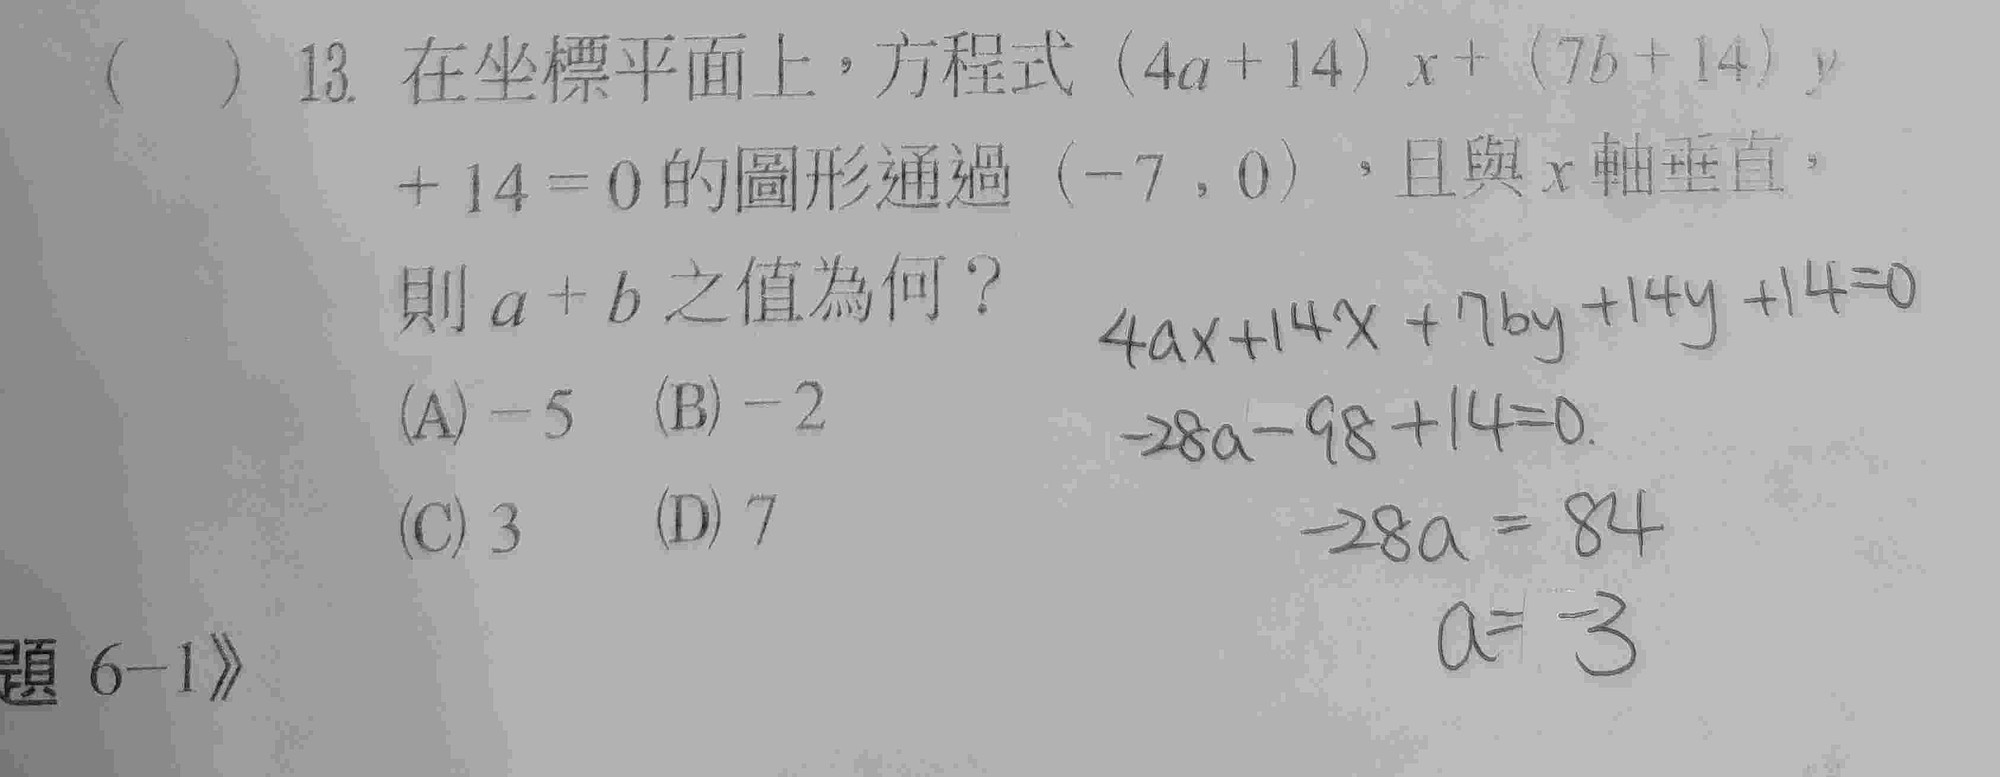 ( ) 13. 在坐標平面上，方程式（4a＋14）x＋（7b＋14）y
＋14＝0 的圖形通過（－7，0），且與 x 軸垂直，
則 a＋b 之值為何？
(A)－5 (B)－2
(C) 3 (D) 7
4ax+14x+7by+14y+14=0
-28a-98+14=0.
-28a=84
a=-3
題 6－1》